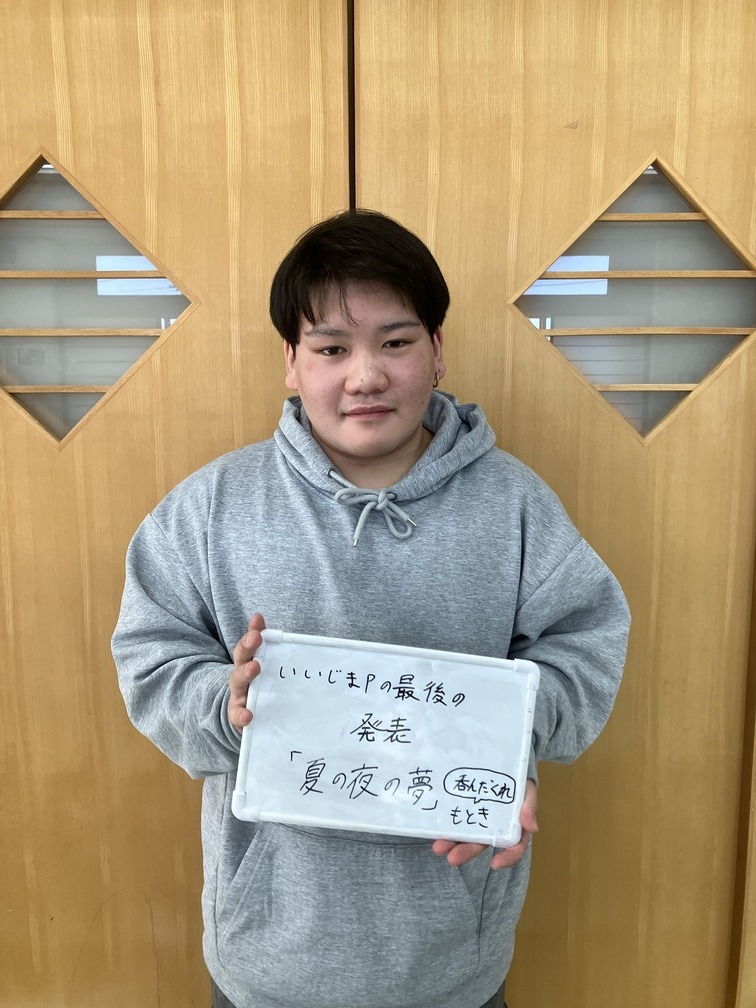 いいじまPの最後の
発表
「夏の夜の夢」
呑んだくれ
もとき